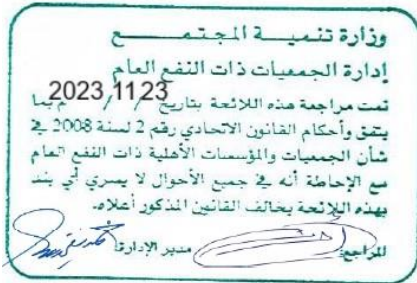 وزارة تنميـــة المجتمـــــع
إدارة الجمعيات ذات النفع العام
تمت مراجعة هذه اللائحة بتاريخ 2023/11/23م بما
يتفق وأحكام القانون الاتحادي رقم 2 لسنة 2008 في
شأن الجمعيات والمؤسسات الأهلية ذات النفع العام
مع الإحاطة أنه في جميع الأحوال لا يسري أي بند
بهذه اللائحة يخالف القانون المذكور أعلاه.
المراجع: مدير الإدارة: